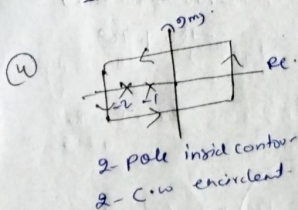 Img
(4)
Re.
-2 -1
2- pole insid contour
2- C.W encirclent.